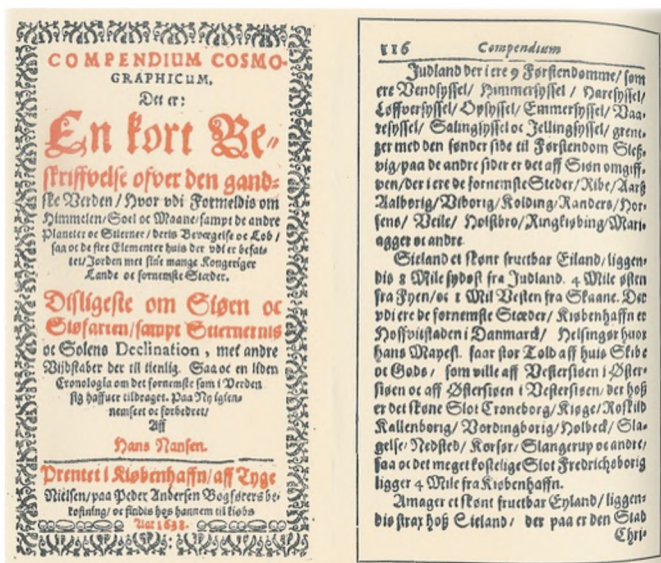 COMPENDIUM COSMO-
GRAPHICUM,
Det er:
En kort Be-
skriffvelse ofver den gand-
ske Verden / Hvor vdi Formeldis om
Himmelen / Soel oc Maane / sampt de andre
Planeter oc Stierner / deris Bevægelse oc Løb /
saa oc de fire Elementer huis der vdi er befat-
tet / Jorden met sine mange Kongeriger
Lande oc fornemste Stæder.
Disligeste om Siøen oc
Siøfarten / sampt Stiernernis
oc Solens Declination, met andre
Vijdskaber der til tienlig. Saa oc en liden
Cronologia om det fornemste som i Verden
sig haffuer tildraget. Paa Ny igien-
nemseet oc forbedret /
Aff
Hans Nansen.
Prentet i Kiøbenhaffn / aff Tyge
Nielsen / paa Peder Andersen Bogførers be-
kostning / oc findis hos hannem til kiøbs
Aar 1638.
116 Compendium
Judland der i ere 9 Førstendomme / som
ere Vendsyssel / Himmersyssel / Haresyssel /
Løffversyssel / Opsyssel / Emmersyssel / Vaa-
resyssel / Salingsyssel oc Jellingsyssel / grent-
zer med den sønder side til Førstendom Sleß-
vig / paa de andre sider er det aff Siøn omgiff-
ven / der i ere de fornemste Steder / Ribe / Aarß
Aalborig / Viborig / Kolding / Randers / Hor-
sens / Veile / Holstbro / Ringkiøbing / Mari-
agger oc andre
Sieland et skønt fructbar Eiland / liggen-
dis 8 Mile sydost fra Judland. 4 Mile østen
fra Fyen / oc 1 Mil Vesten fra Skaane. Der
vdi ere de fornemste Stæder / Kiøbenhaffn er
Hoffviistaden i Danmarck / Helsingør huor
hans Mayest. faar stor Told aff huis Skibe
oc Gods / som ville aff Vestersiøen i Øster-
siøen oc aff Østersiøen i Vestersiøen, der hoß
er det skøne Slot Croneborg / Kiøge / Roskild
Kallenborg / Vordingborig / Holbeck / Sla-
gelse / Nedsted / Korsør / Slangerup oc andre /
saa oc det meget kostelige Slot Fredrichsborig
ligger 4 Mile fra Kiøbenhaffn.
Amager et skønt fructbar Eyland / liggen-
dis strax hoß Sieland / der paa er den Stad
Chri-